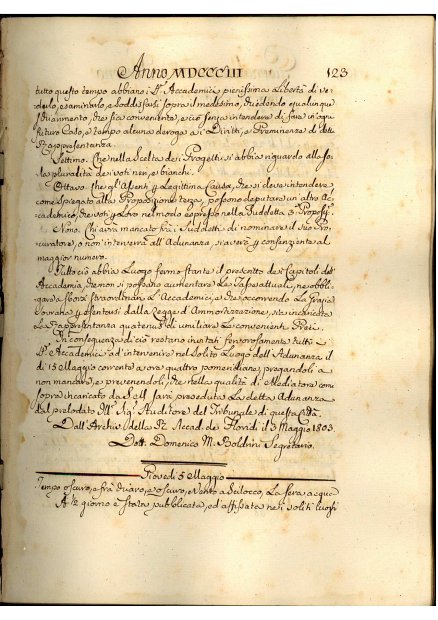 Anno MDCCCIII 123
tutto questo tempo abbiano i Sri. Accademici pienissima libertà di ve-
derlo, esaminarlo, e soddisfarsi sopra il medesimo, chiedendo qualunque
schiarimento, che sia conveniente, e ciò senza intendere di fare in ogni
futuro Caso, e tempo alcuna deroga a i Diritti, e Preminenze di dette
Rappresentanza.
Settimo. Che nella Scelta dei Progetti si abbia riguardo alla so-
la pluralità dei voti neri, e bianchi.
Ottavo che gl'Assenti p Legittima Causa, che si deve intendere
come spiegato alla Proposizione terza, possono deputare un altro Ac-
cademico, che voti p Loro nel modo espresso nella suddetta 3a Propose.
Nono. Chi avrà mancato fra i Suddetti di nominare il suo Pro-
curatore, o non interverrà all'Adunanza, si averà p consenziente al
maggior numero.
Tutto ciò abbia Luogo fermo stante il prescritto de' Capitoli dell'
Accademia, che non si possano aumentare le Tasse attuali, ne obbli-
gare a sforzi straordinari L'Accademici, e che occorrendo La Grazia
Sovrana p esentarsi dalla Legge di Ammortizzazione, sia incaricata
La Rappresentanza quatenus di umiliare Le convenienti Preci.
In conseguenza di ciò restano invitati fervorosamente tutti i
Sri. Accademici ad intervenire nel solito Luogo dell'Adunanza il
dì 15 Maggio corrente a ore quattro pomeridiane, pregandoli a
non mancare, e prevenendoli, che nella qualità di Mediatore come
sopra incaricato da S. M. sarà preseduta La detta Adunanza
dal prelodato Ill. Sig. Auditore del Tribunale di questa Città.
Dall'Archivio della R. Accad. de' Floridi il 3 Maggio 1803.
Dott. Domenico M. Boldrini Segretario.
Giovedì 5 Maggio
Tempo oscuro, e frà chiaro, e oscuro, e Vento a Scilocco, La sera acqua
A 1/2 giorno è stata pubblicata, ed affissata nei soliti luoghi